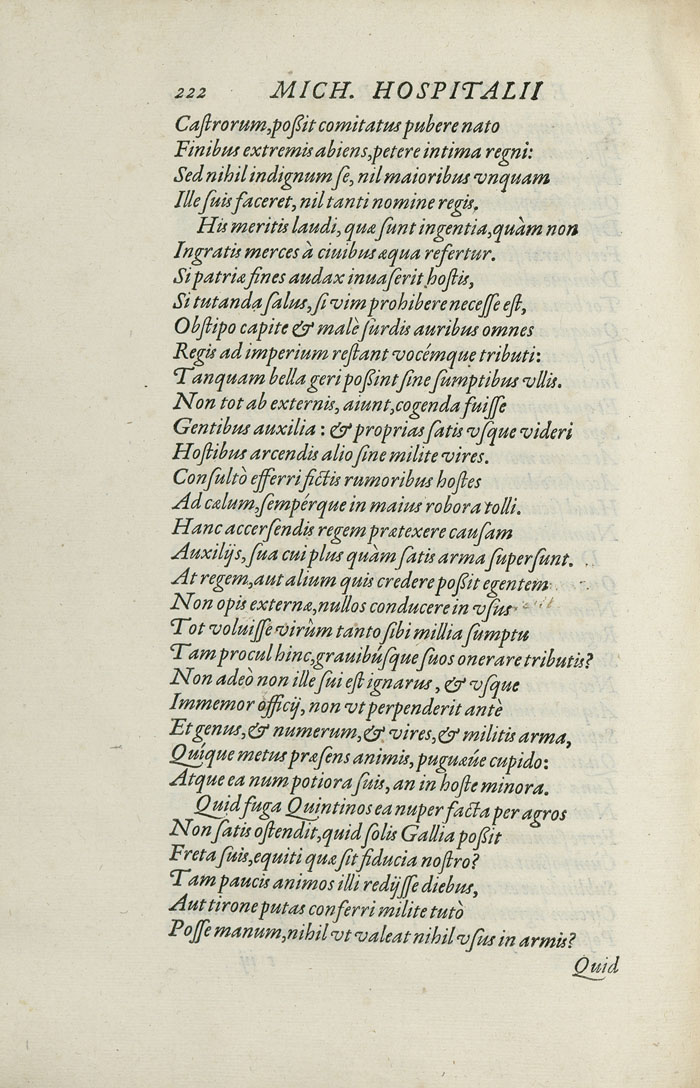 222 MICH. HOSPITALII
Castrorum, poßit comitatus pubere nato
Finibus extremis abiens, petere intima regni:
Sed nihil indignum se, nil maioribus vnquam
Ille suis faceret, nil tanti nomine regis.
His meritis laudi, quæ sunt ingentia, quàm non
Ingratis merces à ciuibus æqua refertur.
Si patriæ fines audax inuaserit hostis,
Si tutanda salus, si vim prohibere necesse est,
Obstipo capite & malè surdis auribus omnes
Regis ad imperium restant vocémque tributi:
Tanquam bella geri poßint sine sumptibus vllis.
Non tot ab externis, aiunt, cogenda fuisse
Gentibus auxilia: & proprias satis vsque videri
Hostibus arcendis alio sine milite vires.
Consultò efferri fictis rumoribus hostes
Ad cælum, sempérque in maius robora tolli.
Hanc accersendis regem prætexere causam
Auxilijs, sua cui plus quàm satis arma supersunt.
At regem, aut alium quis credere poßit egentem
Non opis externæ, nullos conducere in vsus
Tot voluisse virûm tanto sibi millia sumptu
Tam procul hinc, grauibúsque suos onerare tributis?
Non adeò non ille sui est ignarus, & vsque
Immemor officij, non vt perpenderit antè
Et genus, & numerum, & vires, & militis arma,
Quíque metus præsens animis, puguæúe cupido:
Atque ea num potiora suis, an in hoste minora.
Quid fuga Quintinos ea nuper facta per agros
Non satis ostendit, quid solis Gallia poßit
Freta suis, equiti quæ sit fiducia nostro?
Tam paucis animos illi redijsse diebus,
Aut tirone putas conferri milite tutò
Posse manum, nihil vt valeat nihil vsus in armis?
Quid